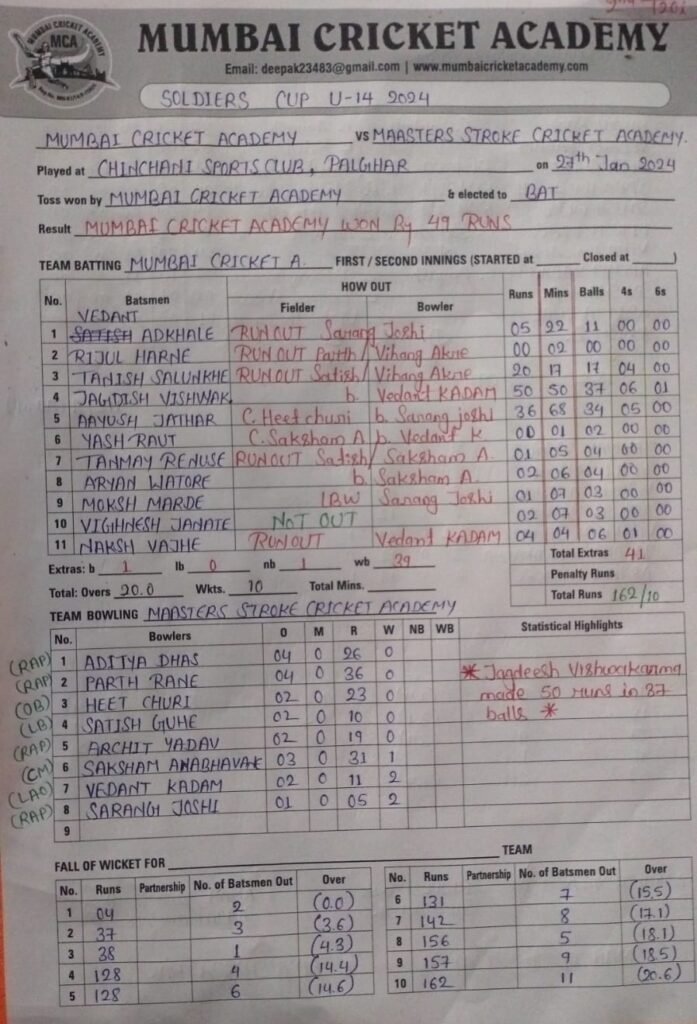 MUMBAI CRICKET ACADEMY
MCA
MUMBAI CRICKET ACADEMY
Email: deepak23483@gmail.com | www.mumbaicricketacademy.com
SOLDIERS CUP U-14 2024
MUMBAI CRICKET ACADEMY VS MAASTERS STROKE CRICKET ACADEMY.
Played at CHINCHANI SPORTS CLUB, PALGHAR on 27th Jan 2024
Toss won by MUMBAI CRICKET ACADEMY & elected to BAT
Result MUMBAI CRICKET ACADEMY WON By 49 RUNS
TEAM BATTING MUMBAI CRICKET A. FIRST / SECOND INNINGS (STARTED at Closed at )
No. Batsmen HOW OUT Runs Mins Balls 4s 6s
Fielder Bowler
VEDANT
1 SATISH ADKHALE RUNOUT Sarang Joshi 05 22 11 00 00
2 RIJUL HARNE RUNOUT Parth / Vihang Akre 00 02 00 00 00
3 TANISH SALUNKHE RUNOUT Satish/ Vihang Akre 20 17 17 04 00
4 JAGDISH VISHWAK b. Vedant KADAM 50 50 37 06 01
5 AAYUSH JATHAR C. Heet churi b. Sarang joshi 36 68 34 05 00
6 YASH RAUT C. Saksham A b. Vedant K 00 01 02 00 00
7 TANMAY RENUSE RUNOUT Satish/ Saksham A. 01 05 04 00 00
8 ARYAN WATORE b. Saksham A. 02 06 04 00 00
9 MOKSH MARDE LBW Sarang Joshi 01 07 03 00 00
10 VIGHNESH JANATE NOT OUT 02 07 03 00 00
11 NAKSH VAJHE RUNOUT Vedant KADAM 04 04 06 01 00
Extras: b 1 lb 0 nb 1 wb 39 Total Extras 41
Penalty Runs
Total: Overs 20.0 Wkts. 10 Total Mins. Total Runs 162/10
TEAM BOWLING MAASTERS STROKE CRICKET ACADEMY
No. Bowlers O M R W NB WB Statistical Highlights
(RAP) 1 ADITYA DHAS 04 0 26 0
(RAP) 2 PARTH RANE 04 0 36 0
(OB) 3 HEET CHURI 02 0 23 0
(LB) 4 SATISH GUHE 02 0 10 0
(RAP) 5 ARCHIT YADAV 02 0 19 0
(CM) 6 SAKSHAM ANABHAVANE 03 0 31 1
(LAO) 7 VEDANT KADAM 02 0 11 2
(RAP) 8 SARANG JOSHI 01 0 05 2
9
* Jagdeesh Vishwakarma
made 50 runs in 37
balls *
FALL OF WICKET FOR TEAM
No. Runs Partnership No. of Batsmen Out Over
1 04 2 (0.0)
2 37 3 (3.6)
3 38 1 (4.3)
4 128 4 (14.4)
5 128 6 (14.6)
No. Runs Partnership No. of Batsmen Out Over
6 131 7 (15.5)
7 142 8 (17.1)
8 156 5 (18.1)
9 157 9 (18.5)
10 162 11 (20.6)